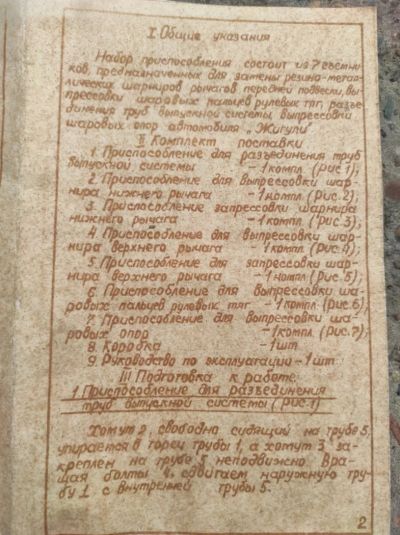 I Общие указания
Набор приспособления состоит из 7 съемни-
ков, предназначенных для замены резино-метал-
лических шарниров рычагов передней подвески, вы-
прессовки шаровых пальцев рулевых тяг, разъе-
динения труб выпускной системы, выпрессовки
шаровых опор автомобиля „Жигули"
II Комплект поставки
1. Приспособление для разъединения труб
выпускной системы – 1 компл (рис 1);
2. Приспособление для выпрессовки шар-
нира нижнего рычага – 1 компл (Рис. 2);
3. Приспособление запрессовки шарнира
нижнего рычага – 1 компл (Рис 3);
4. Приспособление для выпрессовки шар-
нира верхнего рычага 1 компл. (Рис. 4);
5. Приспособление для запрессовки шар-
нира верхнего рычага – 1 компл (Рис. 5);
6. Приспособление для выпрессовки ша-
ровых пальцев рулевых тяг – 1 компл (Рис 6);
7. Приспособление для выпрессовки ша-
ровых опор – 1 компл. (Рис. 7);
8. Коробка – 1 шт
9. Руководство по эксплуатации – 1 шт
III Подготовка к работе
1 Приспособление для разъединения
труб выпускной системы (Рис 1)
Хомут 2, свободно сидящий на трубе 5,
упирается в торец трубы 1, а хомут 3 за-
креплен на трубе 5 неподвижно. Вра-
щая болты 4, сдвигаем наружную тру-
бу 1 с внутренней трубы 5.
2